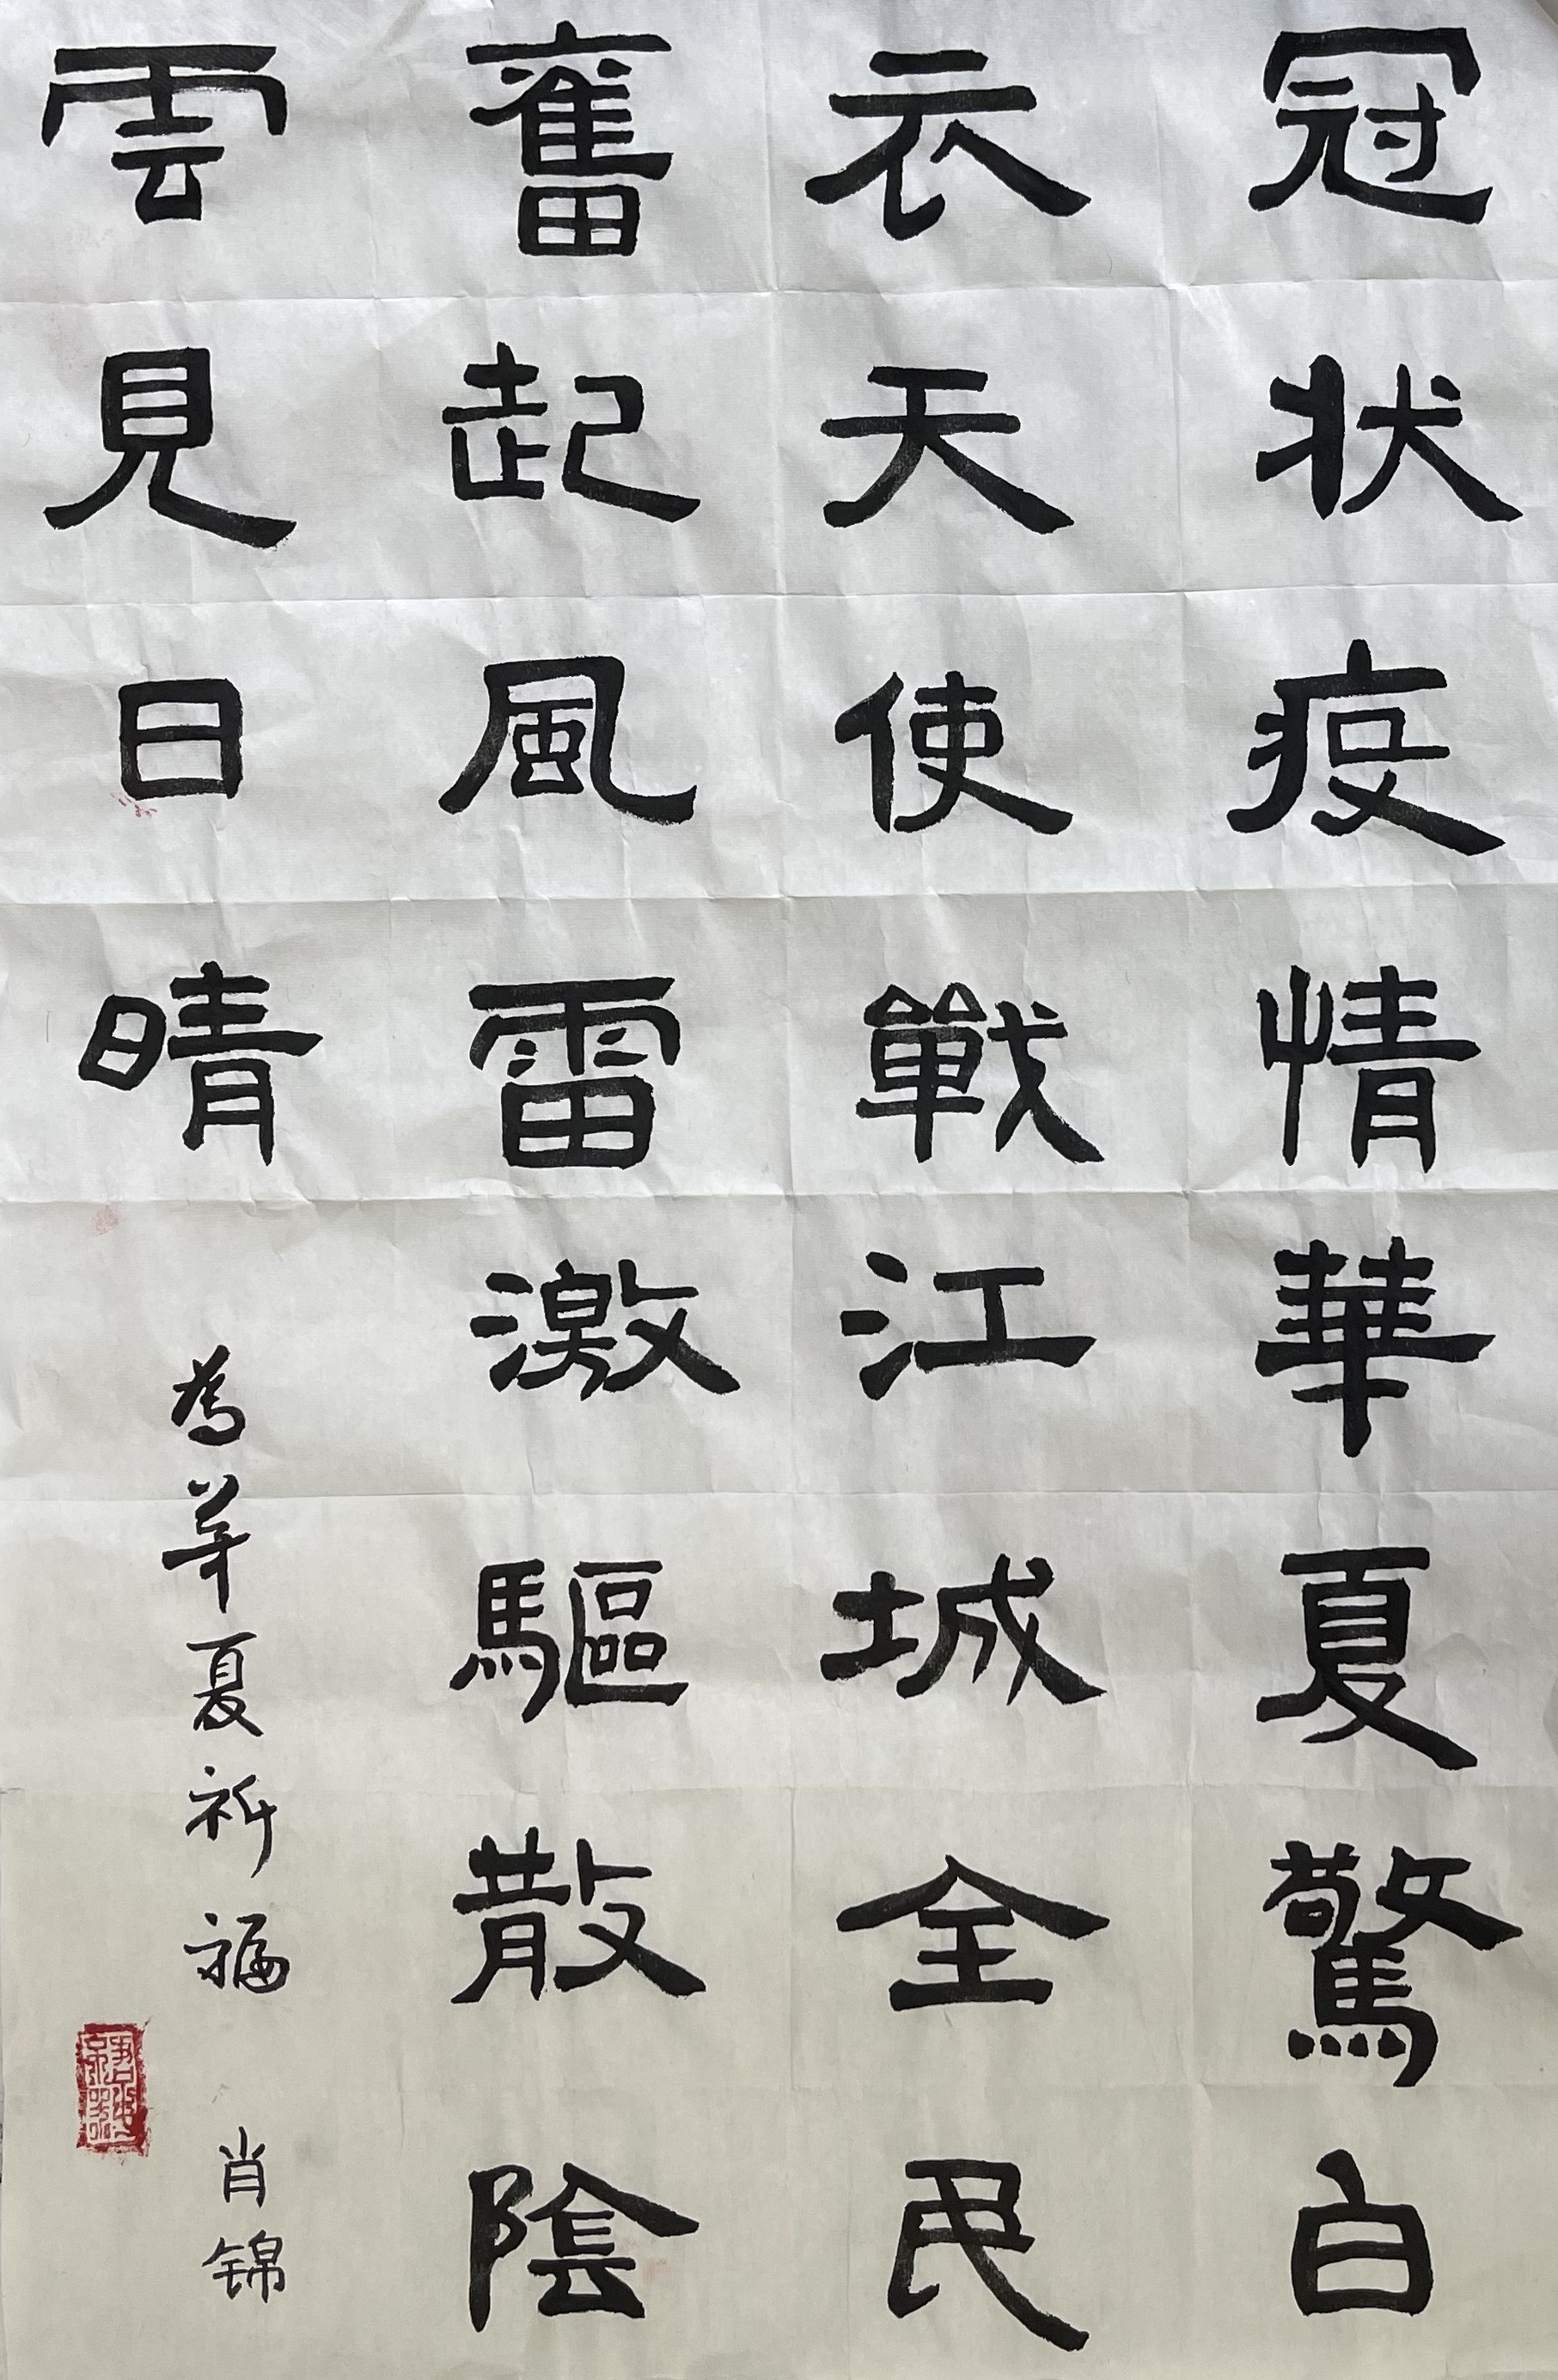 冠状疫情華夏驚白
衣天使戰江城全民
奮起風雷激驅散陰
雲見日晴
為華夏祈福 肖锦